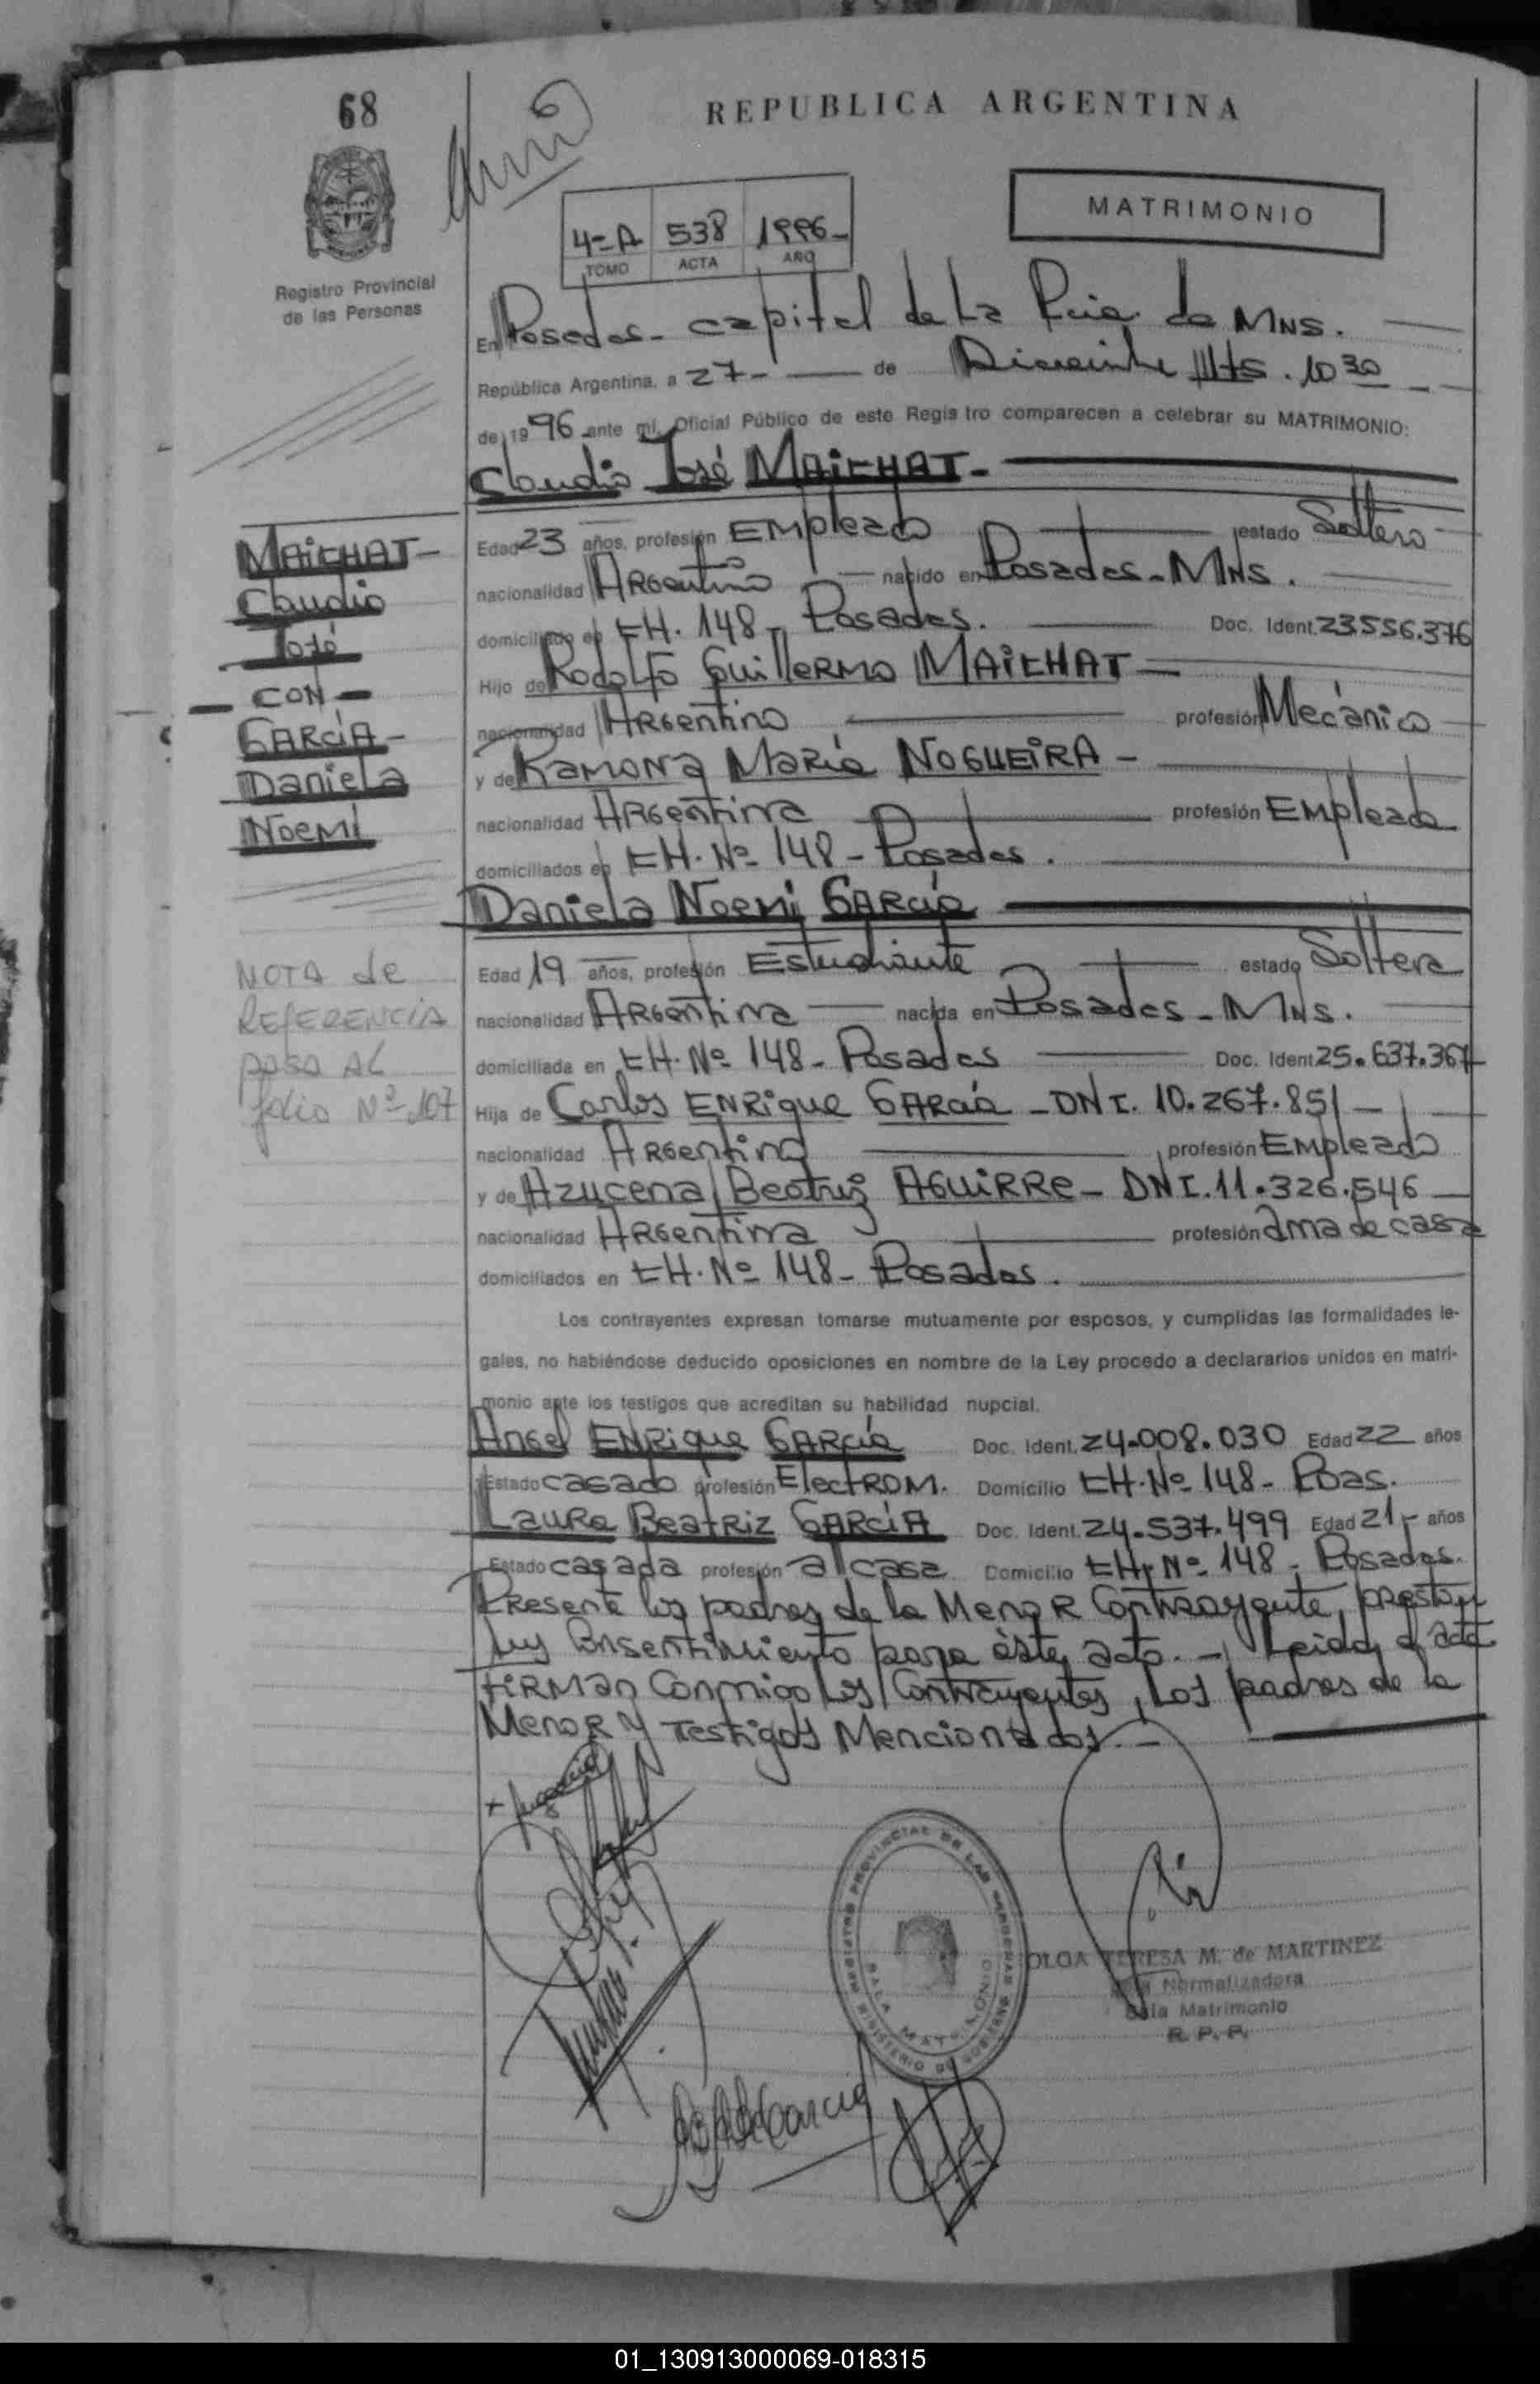 68
REPUBLICA ARGENTINA
MATRIMONIO
4-A 538 1996-
TOMO ACTA AÑO
Registro Provincial
de las Personas
En Posadas- capital de La Pcia de MNS.
República Argentina, a 27- de Diciembre HS. 10 30
de 1996 ante mí, Oficial Público de este Registro comparecen a celebrar su MATRIMONIO:
Claudio José MAICHAT-
Edad 23 años, profesión EMpleado estado Soltero
nacionalidad ARgentino nacido en Posadas-MNS.
domiciliado en CH. 148- Posadas. Doc. Ident. 23.556.376
Hijo de Rodolfo Guillermo MAICHAT-
nacionalidad ARgentino profesión Mecánico
y de RaMONa María NOGUEIRA-
nacionalidad ARgentina profesión EMpleada
domiciliados en CH. Nº 148- Posadas.
MAICHAT-
Claudio
José
-CON-
GARCÍA-
Daniela
NoeMí
Daniela NoeMí GARCía
Edad 19 años, profesión Estudiante estado Soltera
nacionalidad ARgentina nacida en Posadas-MNS.
domiciliada en CH. Nº 148- Posadas Doc. Ident. 25.637.367
Hija de Carlos ENRique GARCía -DNI. 10.267.851-
nacionalidad ARgentino profesión EMpleado
y de Azucena Beatriz AGUIRRe- DNI. 11.326.546
nacionalidad ARgentina profesión ama de casa
domiciliados en CH. Nº 148- Posadas.
NOTA de
REFERENCIA
PASA AL
folio Nº 107
Los contrayentes expresan tomarse mutuamente por esposos, y cumplidas las formalidades le-
gales, no habiéndose deducido oposiciones en nombre de la Ley procedo a declararlos unidos en matri-
monio ante los testigos que acreditan su habilidad nupcial.
Angel ENRique GARCía Doc. Ident. 24.008.030 Edad 22 años
Estado casado profesión ElectROM. Domicilio CH. Nº 148- Pdas.
LauRa BeatRiz GARCÍA Doc. Ident. 24.537.499 Edad 21- años
Estado casada profesión a/casa Domicilio CH. Nº 148- Posadas.
PResente los padres de la MenoR Contrayente, prestan
su ConsentiMiento para éste acto.- Leida el acta
FIRMan Conmigo los Contrayentes, los padres de la
MenoR y Testigos Mencionados.-
REGISTRO PROVINCIAL DE LAS PERSONAS
SALA MATRIMONIO
MINISTERIO DE GOBIERNO
OLGA TERESA M. de MARTINEZ
Normalizadora
Sala Matrimonio
R. P. P.
01_130913000069-018315